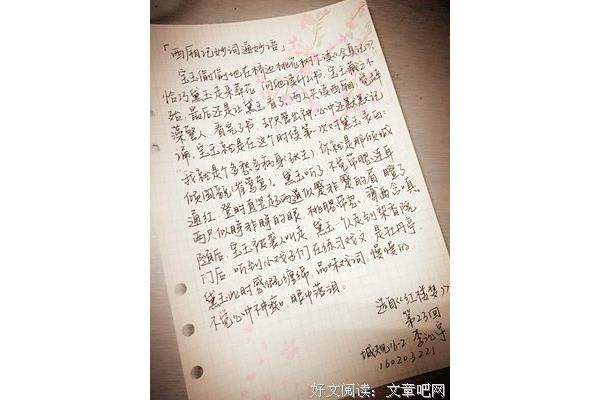 「西厢记妙词通妙语」
宝玉偷偷地在桥边桃花树下读《会真记》,
恰巧黛玉走来葬花,问他读什么书,宝玉藏之不
始,最后还是让黛玉看了,两人共读西厢,觉辞
藻警人,看完了书,却只管出神,心中还默默记
诵,宝玉就是在这个时候第一次对黛玉表白:
"我就是个多愁多病身(张生),你就是那倾城
倾国貌(崔莺莺)。黛玉听了,不觉带腮连耳
通红,登时直竖起两道似蹙非蹙的眉,瞪了
两只似睁非睁的眼,桃腮带怒,薄面含嗔。
随后,宝玉被袭人叫走,黛玉走到梨香院
门后,听到小戏子们在练习戏文,是牡丹亭。
黛玉此时感缠绵,品味戏词,慢慢的,
不觉心中神痴,眼中落泪。
选自《红楼梦》
第23回
城规16-2 李
160203221
好文阅读:文章吧网